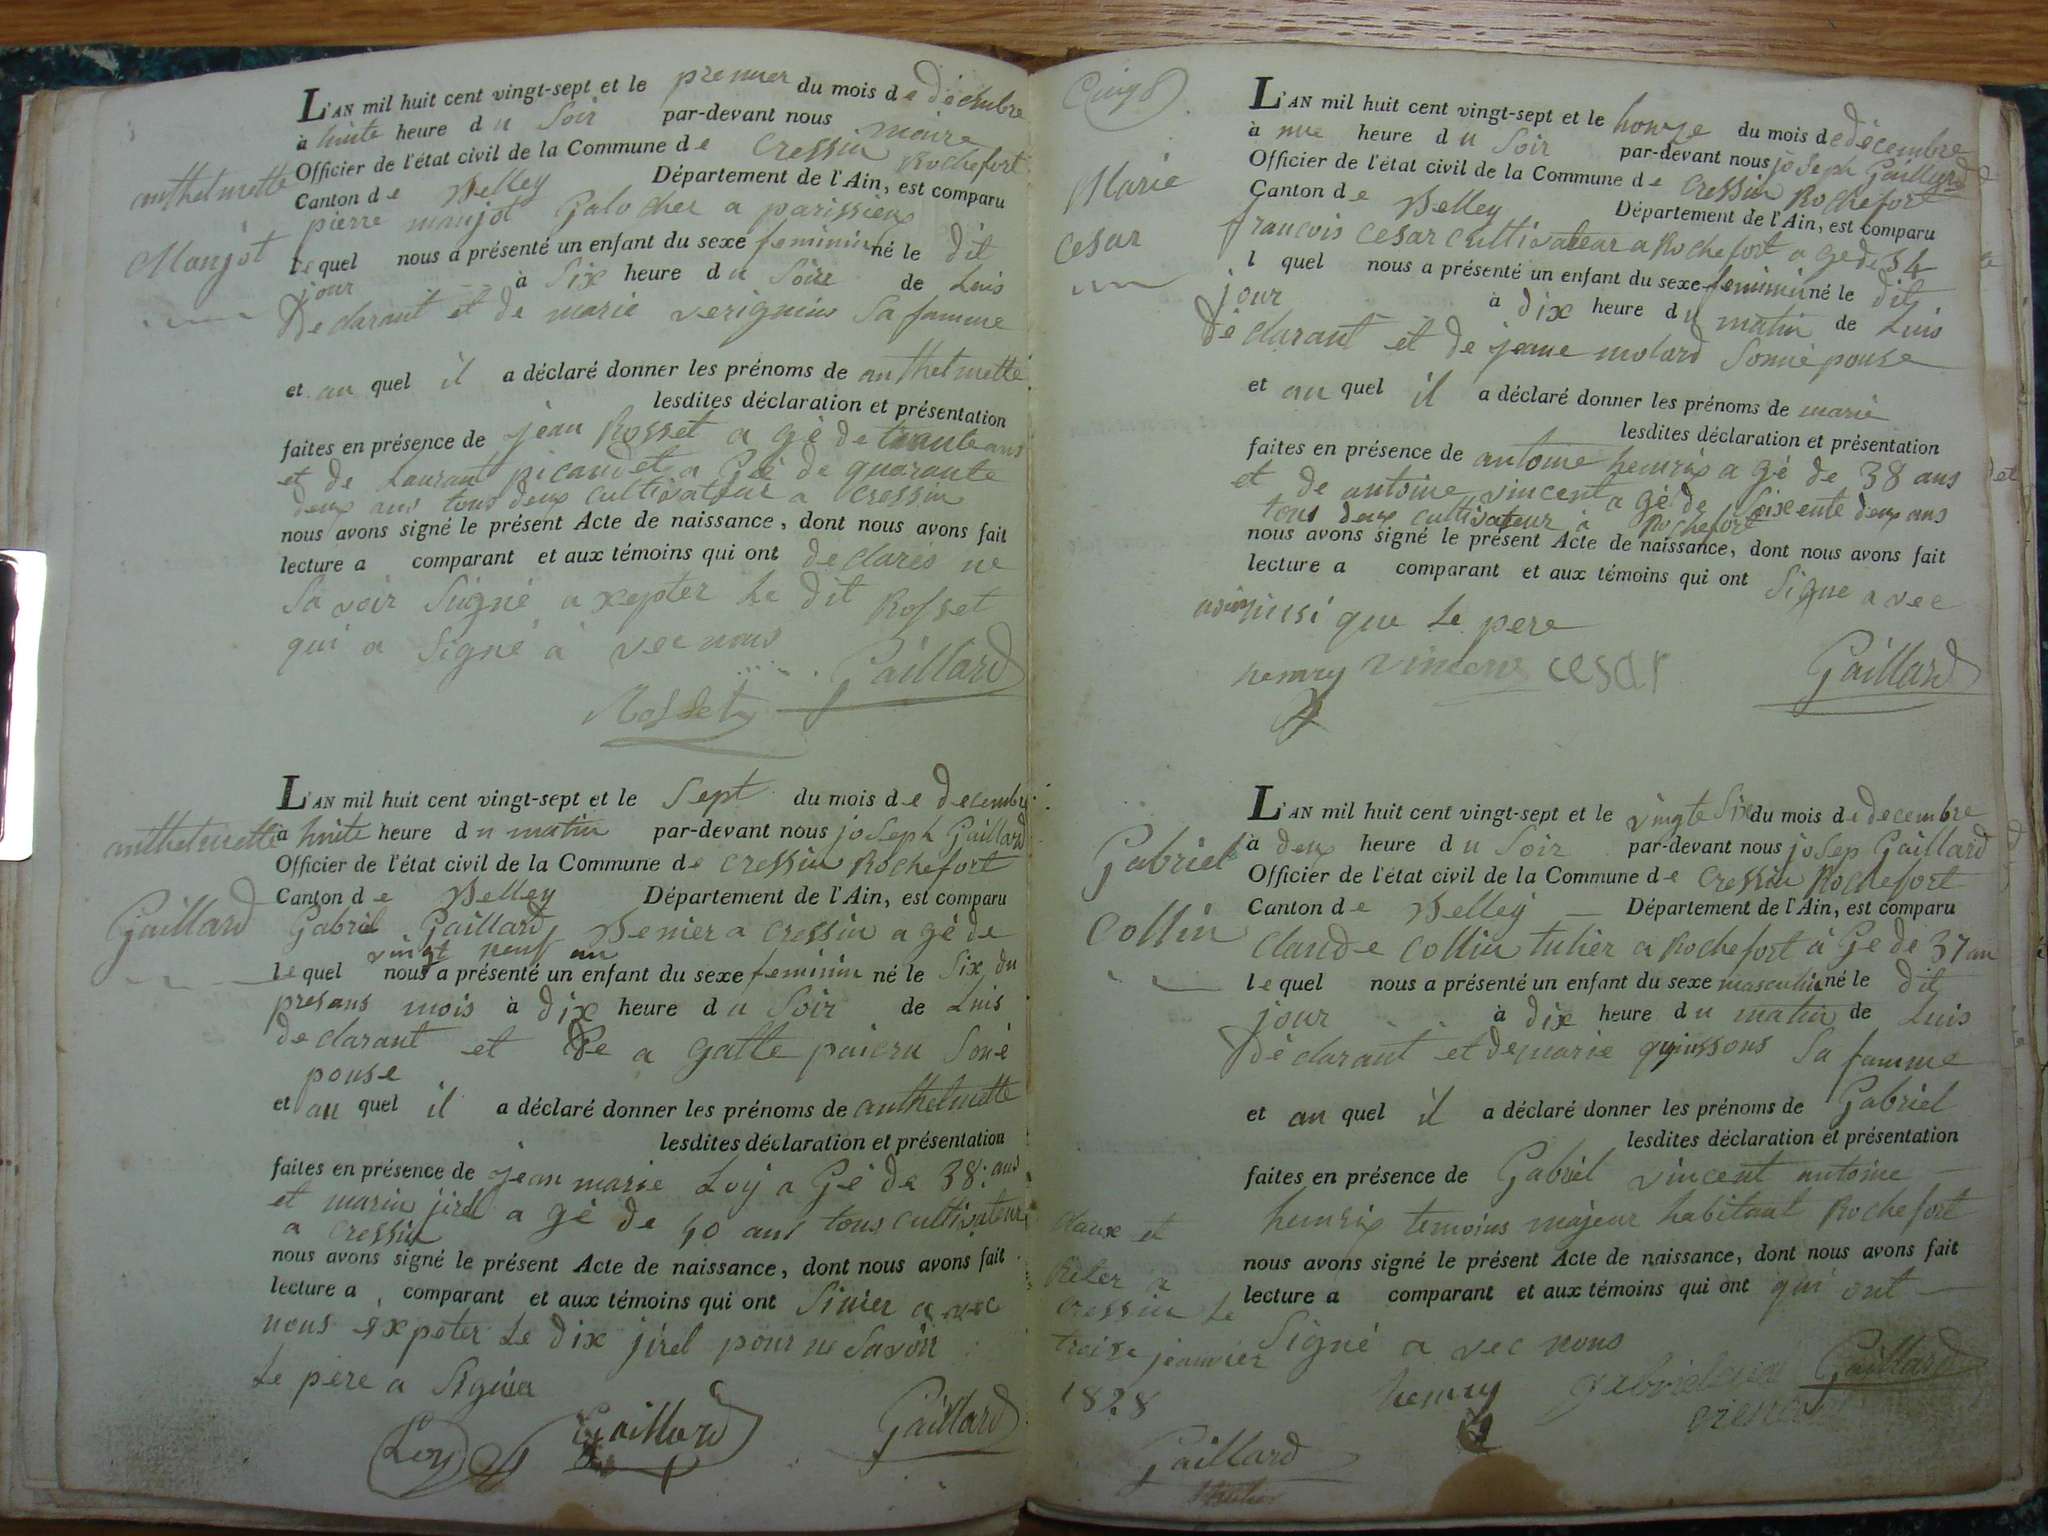 L'AN mil huit cent vingt-sept et le premier du mois de décembre
à huite heure du Soir par-devant nous maire
Officier de l'état civil de la Commune de Cressin Rochefort
Canton de Belley Département de l'Ain, est comparu
pierre maujot Galocher a parissieux
lequel nous a présenté un enfant du sexe feminin né le dit
jour à Six heure du Soire de Luis
Declarant et de marie verignieux Sa famme
et au quel il a déclaré donner les prénoms de anthelmette
lesdites déclaration et présentation
faites en présence de jean Rosset a gé de trante ans
et de Laurant picaudet a Gé de quarante
deux ans tous deux cultivateur a cressin
nous avons signé le présent Acte de naissance, dont nous avons fait
lecture a comparant et aux témoins qui ont declarés ne
Savoir Signé axepter Le dit Rosset
qui a Signé à vec nous
Gaillard
Rosset
anthelmette
Maujot
L'AN mil huit cent vingt-sept et le Sept du mois de decembre
à huite heure du matin par-devant nous joSeph Gaillard
Officier de l'état civil de la Commune de Cressin Rochefort
Canton de Belley Département de l'Ain, est comparu
Gabriel Gaillard a cressin a gé de
vingt neuf an
lequel nous a présenté un enfant du sexe feminin né le Six du
presans mois à dix heure du Soir de Luis
declarant et De a gatte Soné
pouse
et au quel il a déclaré donner les prénoms de anthelmette
lesdites déclaration et présentation
faites en présence de jean marie Loy a Gé de 38 ans
et marin jirel a gé de 50 ans tous cultivateur
a Cressin
nous avons signé le présent Acte de naissance, dont nous avons fait
lecture a comparant et aux témoins qui ont Sinier avec
nous expeter Le dix jirel pour ne Savoir
Le pere a Signia
Loy Gaillard Gaillard
anthelmette
Gaillard
L'AN mil huit cent vingt-sept et le honze du mois de décembre
à une heure du Soir par-devant nous joSeph Gaillard
Officier de l'état civil de la Commune de Cressin Rochefort
Canton de Belley Département de l'Ain, est comparu
francois cesar cultivateur a Rochefort a gé de 34
l quel nous a présenté un enfant du sexe feminin né le dit
jour à dix heure du matin de Luis
déclarant et de jeane molard Soné pouse
et au quel il a déclaré donner les prénoms de marie
lesdites déclaration et présentation
faites en présence de antoine henrix a gé de 38 ans
et de antoine vincent a gé de Soixente deux ans
tous deux cultivateur à Rochefort
nous avons signé le présent Acte de naissance, dont nous avons fait
lecture a comparant et aux témoins qui ont Signe avec
ainsi que Le pere
henry vincent cesar Gaillard
Marie
cesar
L'AN mil huit cent vingt-sept et le vingte Six du mois de decembre
à deux heure du Soir par-devant nous joSep Gaillard
Officier de l'état civil de la Commune de Cressin Rochefort
Canton de Belley Département de l'Ain, est comparu
claude collin tulier a Rochefort à Gé de 37 an
lequel nous a présenté un enfant du sexe masculin né le dit
jour à dix heure du matin de Luis
déclarant et de marie quinssons Sa famme
et au quel il a déclaré donner les prénoms de Gabriel
lesdites déclaration et présentation
faites en présence de Gabriel vincent antoine
henrix temoins majeur habitant Rochefort
nous avons signé le présent Acte de naissance, dont nous avons fait
lecture a comparant et aux témoins qui ont qui ont
Signé a vec nous
henry Gaillard
Gabriel
Collin
Claux et
Reter a
Cressin Le
troise jeanvier
1828
Gaillard